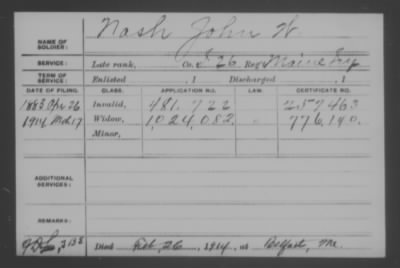 NAME OF SOLDIER: Nash John W.
SERVICE: Late rank, Co. I 26 Reg't Maine Inf
TERM OF SERVICE: Enlisted , 1 Discharged , 1
DATE OF FILING. CLASS. APPLICATION NO. LAW. CERTIFICATE NO.
1883 Apr 26 Invalid, 481.722 257463
1914 Mch 17 Widow, 1,024,082. " 776,140.
Minor,
ADDITIONAL SERVICES:
REMARKS:
Died Feb. 26, 1914, at Belfast, Me.